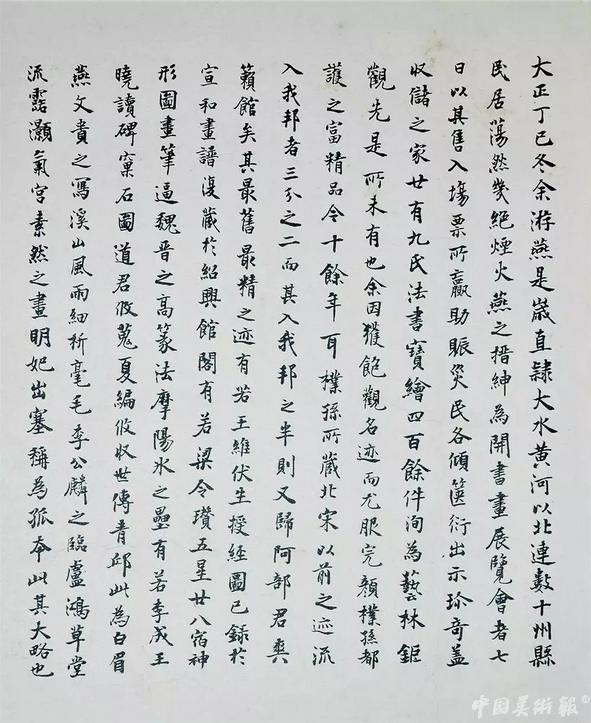 大正丁巳冬余游燕是歲直隸大水黃河以北連數十州縣
民居蕩然幾絕煙火燕之搢紳為開書畫展覽會者七
日以其售入場票所贏助賑災民各傾篋衍出示珍奇蓋
收儲之家廿有九氏法書寶繪四百餘件洵為藝林鉅
觀先是所未有也余因獲飽觀名迹而尤服完顏樸孫都
護之富精品今十餘年耳樸孫所藏北宋以前之迹流
入我邦者三分之二而其入我邦之半則又歸阿部君爽
籟館矣其最舊最精之迹有若王維伏生授經圖已錄於
宣和畫譜復藏於紹興館閣有若梁令瓚五星廿八宿神
形圖畫筆逼魏晉之高篆法摩陽冰之壘有若李成王
曉讀碑窠石圖道君攸蒐夏編攸收世傳青邱此為白眉
燕文貴之寫溪山風雨細析毫毛李公麟之臨盧鴻草堂
流露灝氣宮素然之畫明妃出塞稱為孤本此其大略也
中国美術報